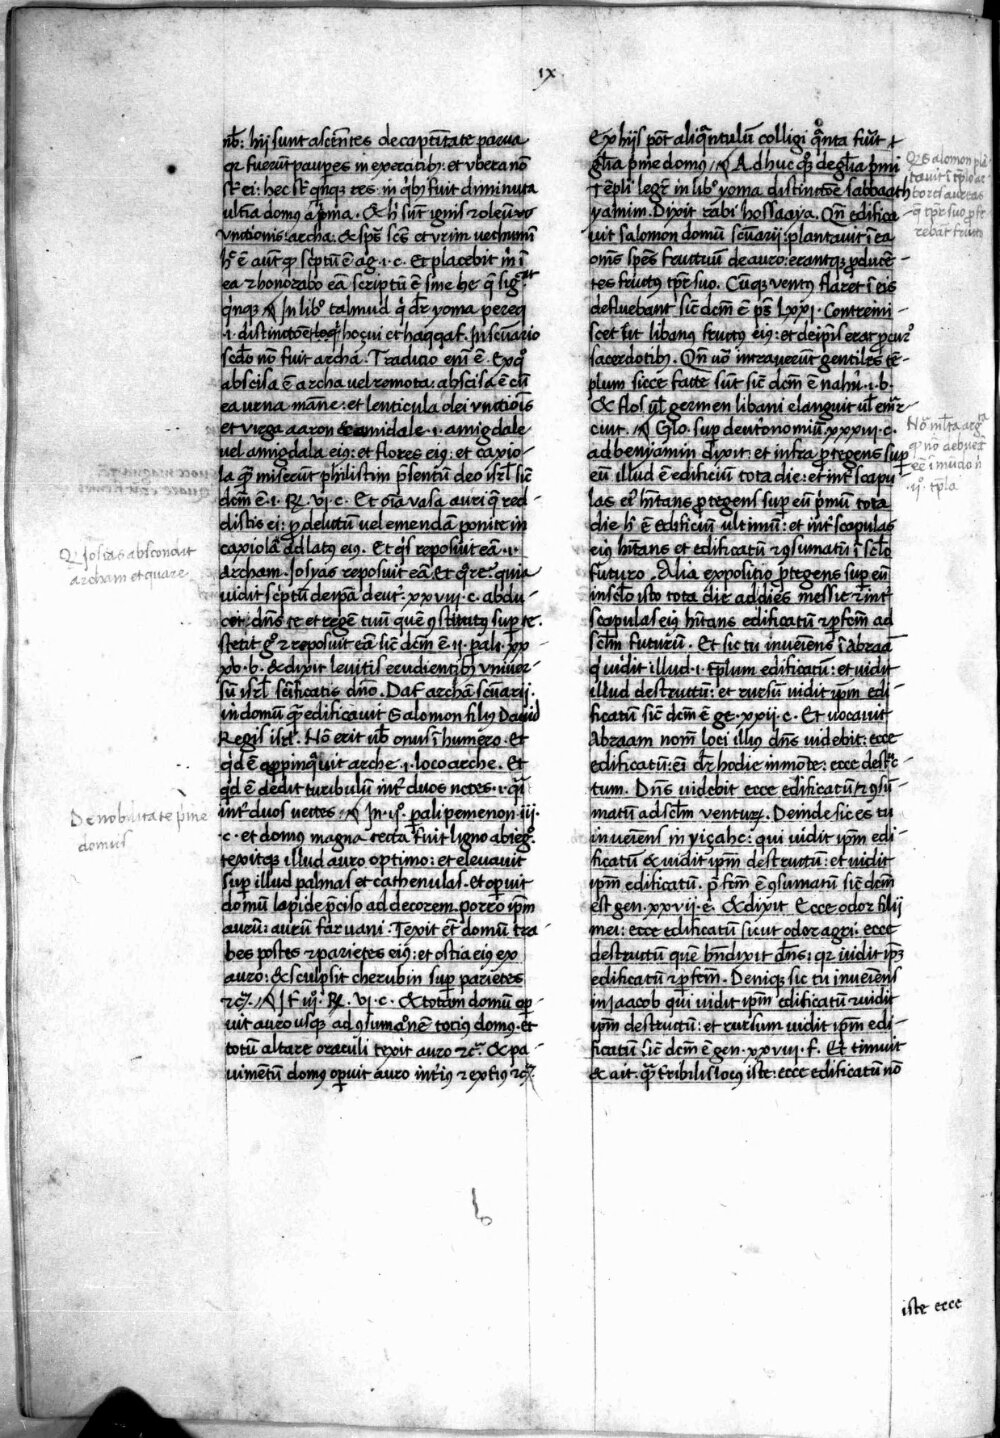 IX.
nb̄: hij sunt ascēntes de captītate parua
qr fuerūt paupes in exercitibꝫ: et vbera nō
st̄ ei: hec st̄ qinqꝫ res: in qibꝫ fuit diminuta
ultīa domus a pīma . & hi sūt ignis ⁊ oleū
vnctionis: archa . & sp̄s sc̄s et vrim
ea ⁊ honorabo eā scriptū ē sine he
qinqꝫ In libo talmud qi dr̄ yoma pereq
.i. distinctōe hoçui et haqqaf. In scūario
scd̄o nō fuit archa . Traditio eni ē . Ex qo
abscisa ē archa vel remota: abscisa ē cū
ea vrna māne: et lenticula olei vnctiōis
et virga aaron & amidale .i. amigdale
vel amigdala eiꝯ: et flores eiꝯ: et caxio-
la q̄ miserūt philistim p̄sentū deo isrl̄ sic̄
dcm̄ ē .i. R̄ . vi. c . Et oīa vasa auri q̄ red-
distis ei: p delictū vel emendā ponite in
caxiola ad latꝯ eiꝯ . Et qis reposuit eā .i.
archam . Josyas reposuit eā . Et qre . quia
vidit scptū de ipā deut . xxviii . c . abdu-
cet dn̄s te et regē tuū quē ꝯstitutꝰ sup te .
stetit go ⁊ reposuit eā sic̄ dcm̄ ē ii . pali . xx
xv . b . & dixit leuitis erudientibꝫ vniuer-
sū isrl̄ scīficatis dn̄o . Daf archā scūarij .
in domū q̄ edificauit Salomon filiꝯ Dauid
Regis isrl̄ . Nō erit vb̄ onus ī humero . Et
qd ē appinqauit arche .i. loco arche . Et
qd ē dedit turibulū intr̄ duos nctes .i. qī
intr̄ duos vectes . In .i°. pali pemenon .iii.
.c. et domus magna tecta fuit ligno abieg°.
texitqꝫ illud auro optimo: et eleuauit
sup illud palmas et cathenulas . Et operuit
domū lapide p̄ciso ad decorem . porro ipm̄
aurū: aurū faruani . Texit et̄ domū tra
bes postes ⁊ parietes eiꝯ: et ostia eiꝯ ex
auro: & sculpsit cherubin sup parietes
⁊c̄. It̄ iij . R̄ . vi. c . & totam domū op-
uit auro vsqꝫ ad ꝯsumaōnē tociꝯ domꝯ . et
totū altare oraculi texit auro ⁊c̄. & pa-
uimētū domꝯ operuit auro intiꝯ ⁊ extiꝯ ⁊c̄
Ex hijs pōt aliqntulū colligi qnta fuit
glīa p̄me domꝯ Adhuc qꝫ de glīa p̄mi
tēpli legr̄ in libo yoma distinctōe sabbaath
yamim . Dixit rabi hossaaya . Qn̄ edifica
uit salomon domū scūarij: plantauit ī ea
om̄s spēs fructuū de auro: erantqꝫ pducē-
tes fructꝯ tpr̄e suo . Cūqꝫ ventꝯ flaret ī eis
defluebant sic̄ dcm̄ ē ps̄ Lxxi . Contremi-
scet sic̄ libanus fructꝯ eiꝯ: et de ipis erat
sacerdotibꝫ . Qn̄ uō intrauerūt gentiles tē-
plum sicce facte sūt sic̄ dcm̄ ē nahū .i. b .
& flos ul̄ germen libani elanguit ul̄
cuit . Glo . sup deut̄onomiū xxxiii . c .
ad beniamin dixit: et infra ptegens sup
eū illud ē edificiū tota die: et intr̄ scapu
las ei hītans ptegens sup eū p̄mū tota
die hi ē edificiū ultimū: et intr̄ scapulas
eiꝯ hītans et edificatū ⁊ ꝯsumatū ī sclo
futuro . Alia expositio p̄tegens sup eū
in sclo isto tota die ad dies messie ⁊ intr̄
scapulas eiꝯ hītans edificatū ⁊ pfcm̄ ad
sclm̄ futurū . Et sic tu inueniens ī Abraā
q uidit illud .i. tplum edificatū: et uidit
illud destructū: et rursū uidit ipm̄ edi-
ficatū sic̄ dcm̄ ē ge . xxii . c . Et uocauit
Abraam nom̄ loci illiꝯ dn̄s uidebit: ecce
edificatū: eī dr̄ hodie in mōte: ecce dest-
ructum . Dn̄s uidebit ecce edificatū ⁊ ꝯsū-
matū ad sclm̄ ventur̄ . Deinde sic es tu
inueniens in yiçahc: qui uidit ipm̄ edi-
ficatū & uidit ipm̄ destructū: et uidit
ipm̄ edificatū . p̄fcm̄ ē ꝯsumatū sic̄ dcm̄
est gen . xxvii . e . & dixit Ecce odor filij
mei: ecce edificatū sicut odor agri: ecce
destructū quē bn̄dixit dn̄s: qr uidit ipꝫ
edificatū ⁊ pfcm̄ . Deniqꝫ sic tu inueniens
in Jaacob qui uidit ipm̄ edificatū ⁊ uidit
ipm̄ destructū: et rursum uidit ipm̄ edi-
ficatū sic̄ dcm̄ ē gen . xxviii . f . Et timuit
& ait . q̄ tribilis locꝯ iste: ecce edificatū nō
Q Josias abscondit
archam et quare
De nobilitate p̄me
domus
Q Salomon plā
tauit ī tplo ar
bores aureas
q̄ tpr̄e suo pfe
rebāt fructꝯ
Nō mlta
q nō debuēt
eē ī mūdo n̄
ii° tpla
iste ecce